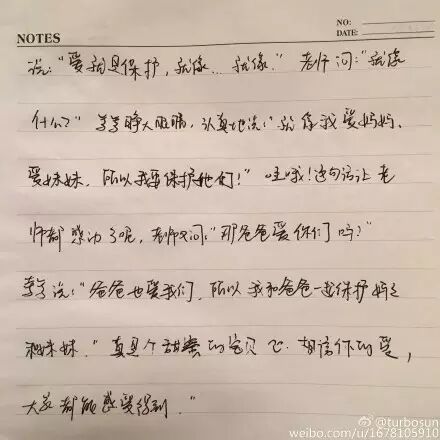 NO:
NOTES
DATE:
说:"爱就是保护,就像…就像."老师问:"就像
什么?"享享睁大眼睛,认真地说:"就像我爱妈妈、
爱妹妹,所以我要保护她们!"哇哦!这句话让老
师都感动了呢,老师又问:"那爸爸爱你们吗?"
享享说:"爸爸也爱我们,所以我和爸爸一起保护妈妈
和妹妹."真是个甜蜜的宝贝 相信你的爱,
大家都能感受得到."
@turbosun
weibo.com/u/1678105910